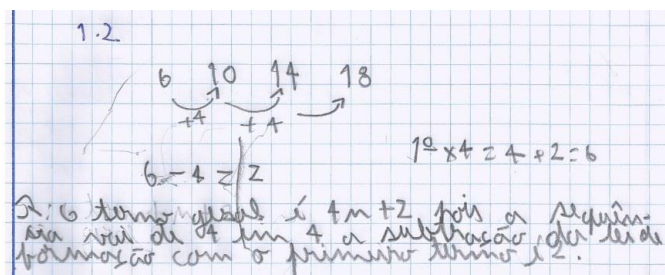 1.2
6 10 14 18
+4 +4
6 - 4 = 2
1º x4 = 4 + 2 = 6
R: O termo geral é 4n+2 pois a sequên-
cia vai de 4 em 4 a subtração da lei de
formação com o primeiro termo é 2.